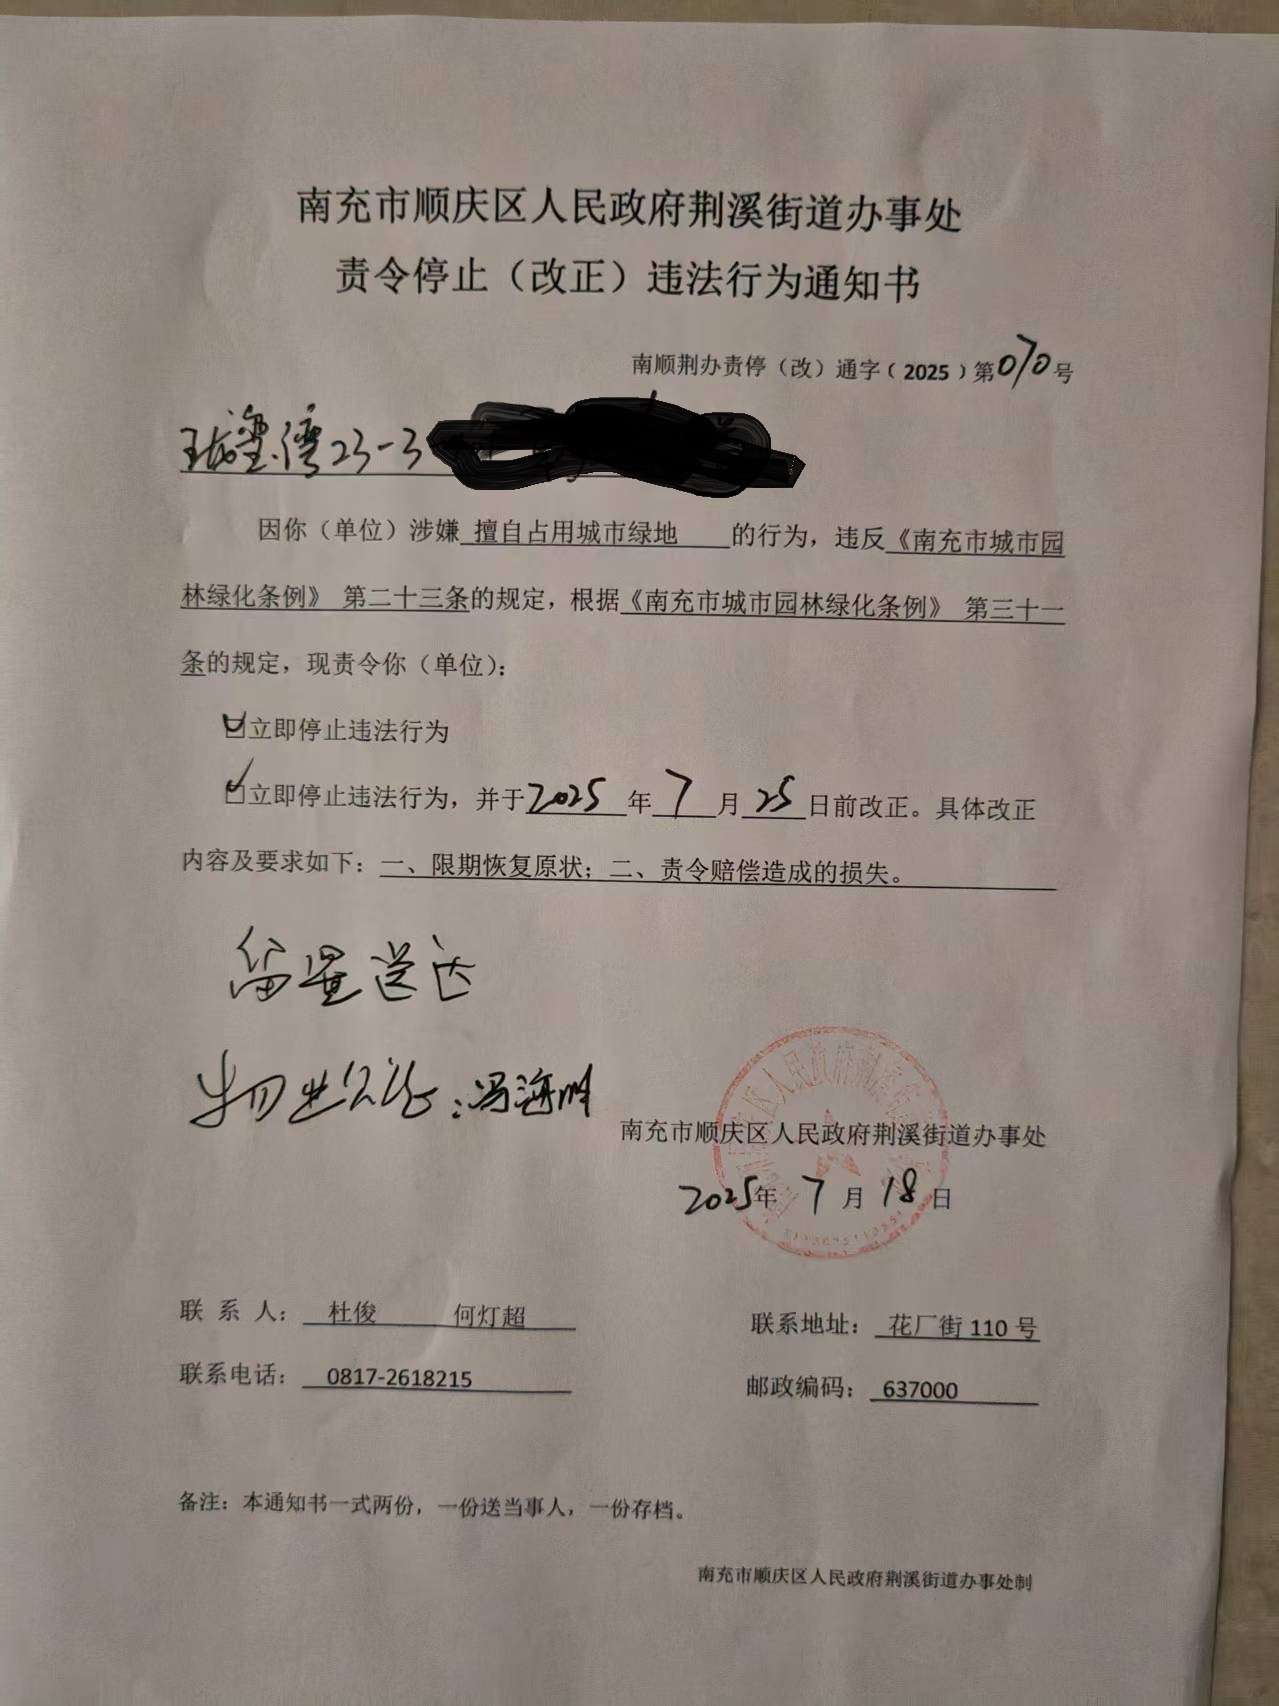 南充市顺庆区人民政府荆溪街道办事处
责令停止（改正）违法行为通知书
南顺荆办责停（改）通字﹝2025﹞第070号
23-3
因你（单位）涉嫌 擅自占用城市绿地 的行为，违反《南充市城市园
林绿化条例》 第二十三条的规定，根据《南充市城市园林绿化条例》 第三十一
条的规定，现责令你（单位）：
立即停止违法行为
立即停止违法行为，并于2025年7月25日前改正。具体改正
内容及要求如下：一、限期恢复原状；二、责令赔偿造成的损失。
留置送达
物业经理：冯海
南充市顺庆区人民政府荆溪街道办事处
2025年7月18日
联 系 人： 杜俊 何灯超
联系地址： 花厂街 110 号
联系电话： 0817-2618215
邮政编码： 637000
备注：本通知书一式两份，一份送当事人，一份存档。
南充市顺庆区人民政府荆溪街道办事处制